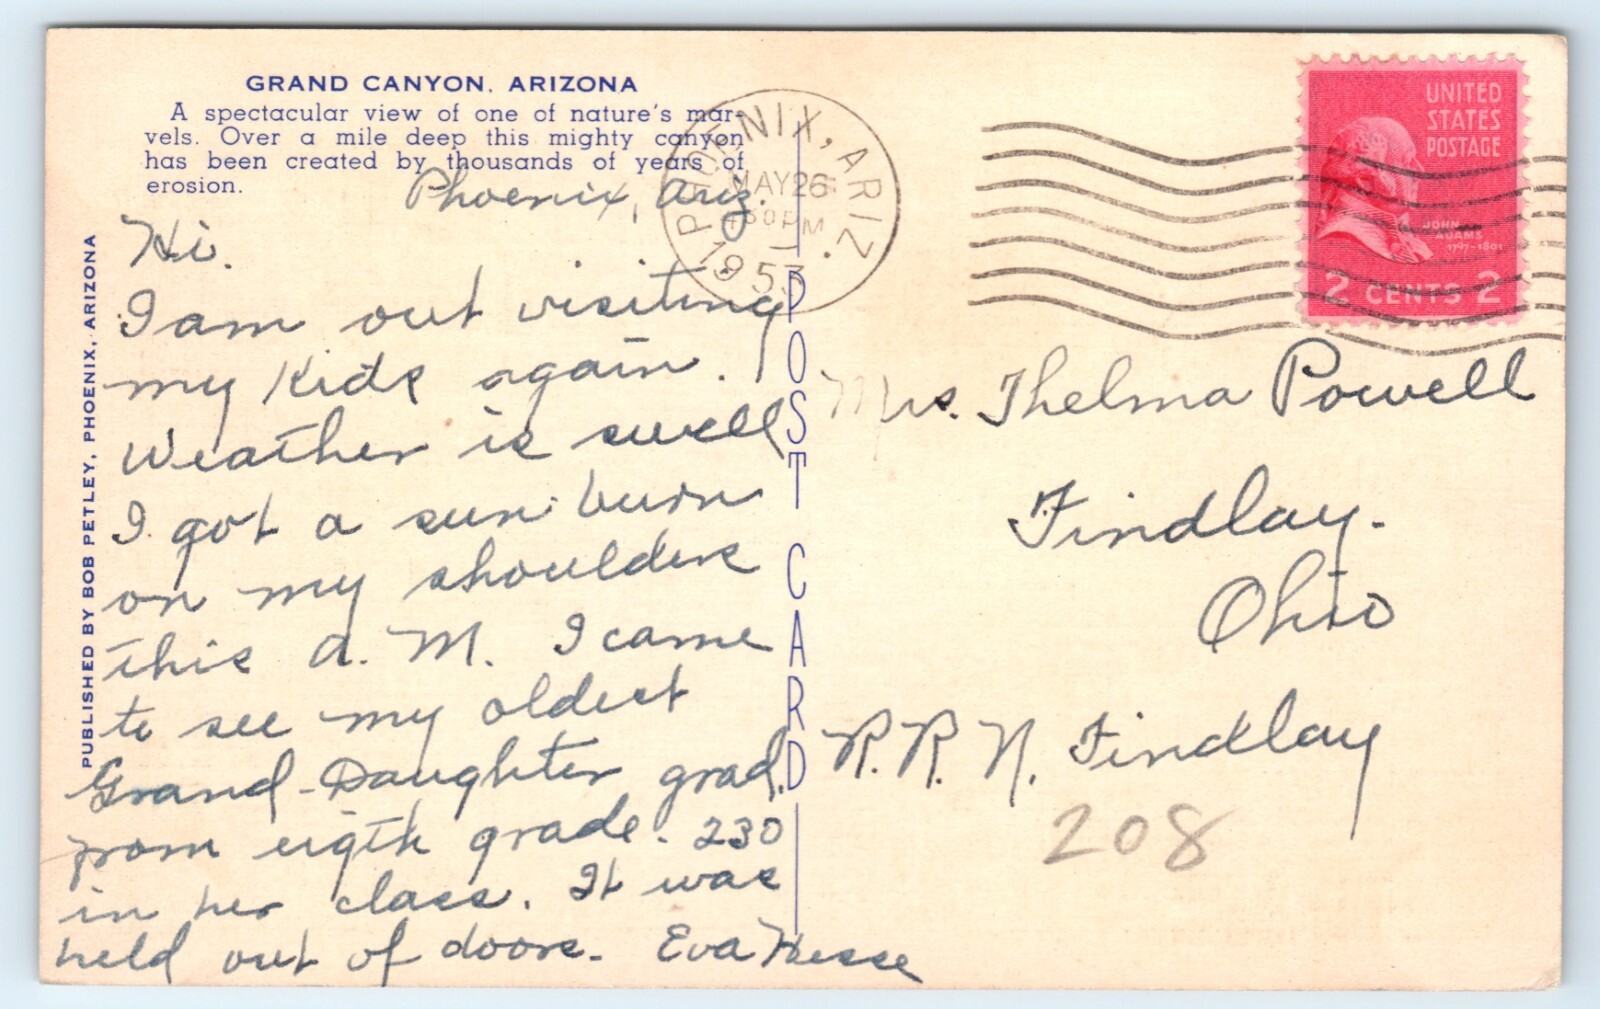 GRAND CANYON, ARIZONA
A spectacular view of one of nature's mar-
vels. Over a mile deep this mighty canyon
has been created by thousands of years of
erosion.
Phoenix, Ariz.
Hi.
I am out visiting
my Kids again.
Weather is swell
I got a sun burn
on my shoulders
this A. M. I came
to see my oldest
Grand-Daughter grad.
from eigth grade. 230
in her class. It was
held out of doors. Eva Hesse
PUBLISHED BY BOB PETLEY, PHOENIX, ARIZONA
POST CARD
PHOENIX, ARIZ.
MAY 26
PM
1953
UNITED
STATES
POSTAGE
JOHN
ADAMS
1797-1801
2 CENTS 2
Mrs. Thelma Powell
Findlay.
Ohio
R. R. N. Findlay
208